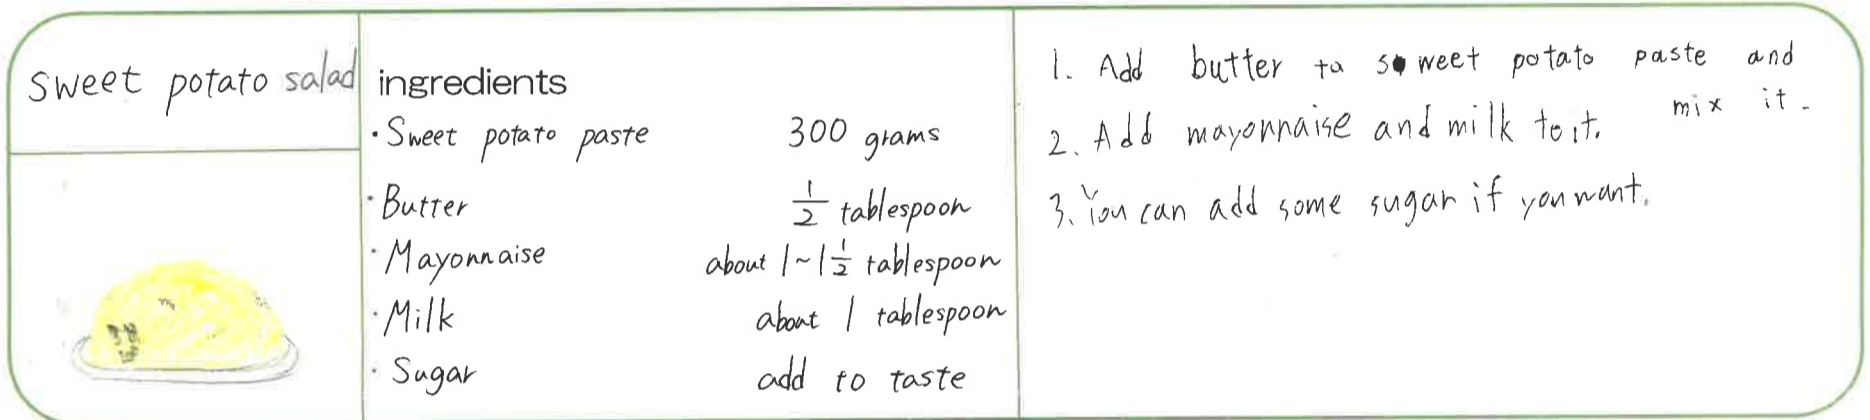 sweet potato salad
ingredients
・Sweet potato paste 300 grams
・Butter 1/2 tablespoon
・Mayonnaise about 1~1 1/2 tablespoon
・Milk about 1 tablespoon
・Sugar add to taste
1. Add butter to sweet potato paste and
mix it.
2. Add mayonnaise and milk to it.
3. You can add some sugar if you want.